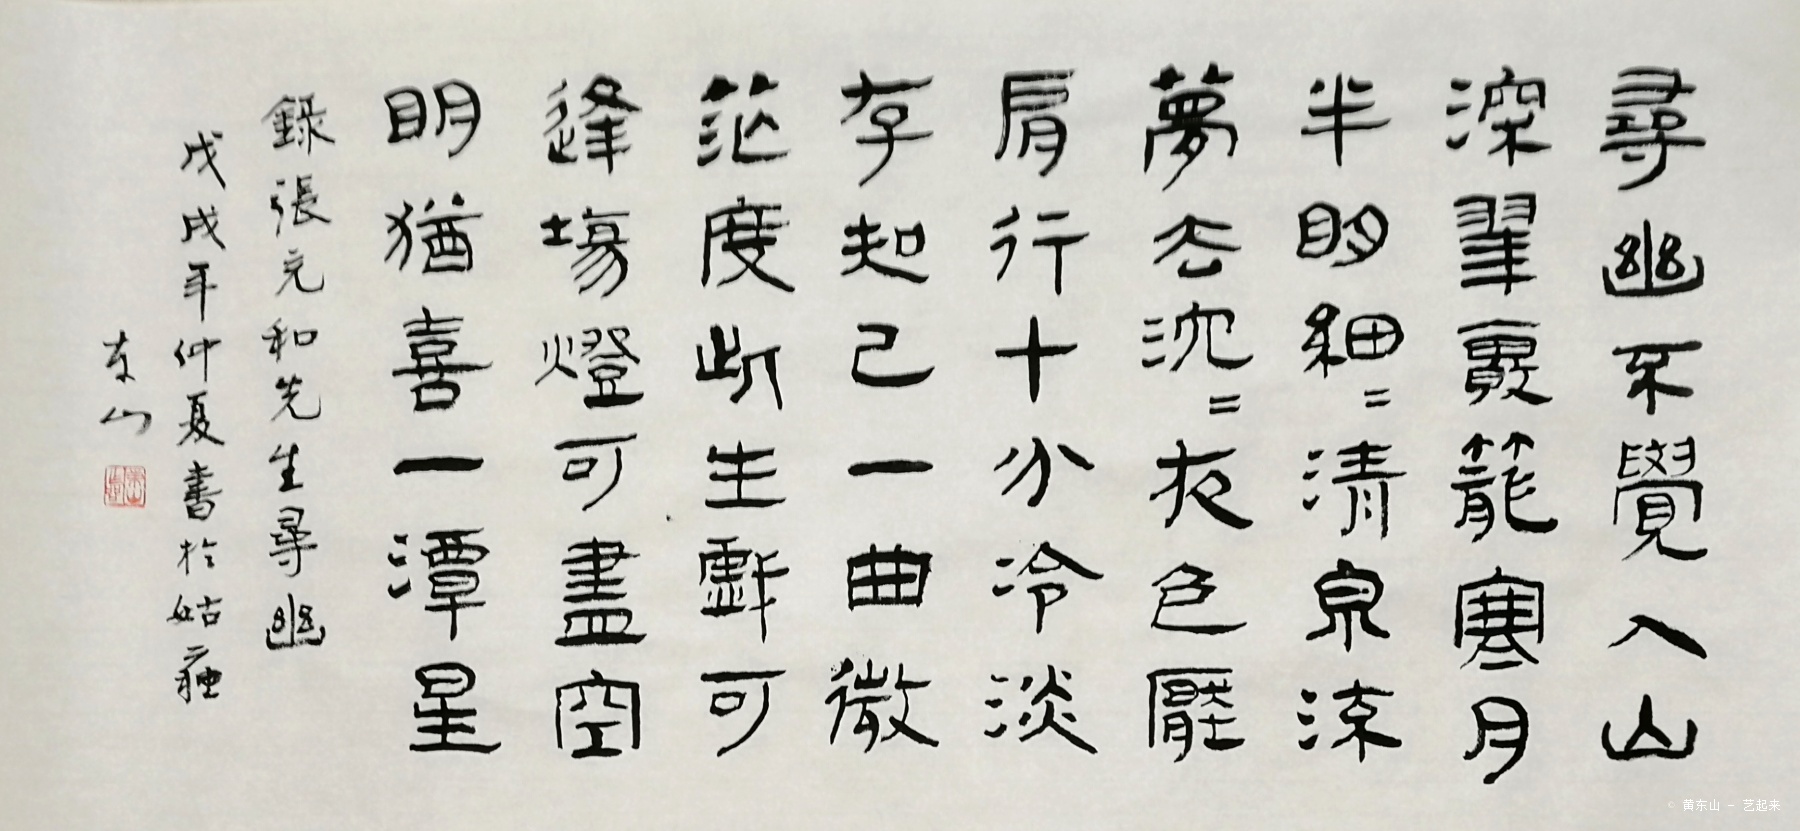 尋幽不覺入山
深翠霧籠寒月
半明細=清泉流
夢去沈=夜色壓
肩行十分冷淡
存知己一曲微
茫度此生戲可
逢場燈可盡空
明猶喜一潭星
錄張充和先生尋幽
戊戌年仲夏書於姑蘇
東山
© 黄东山 - 艺起来